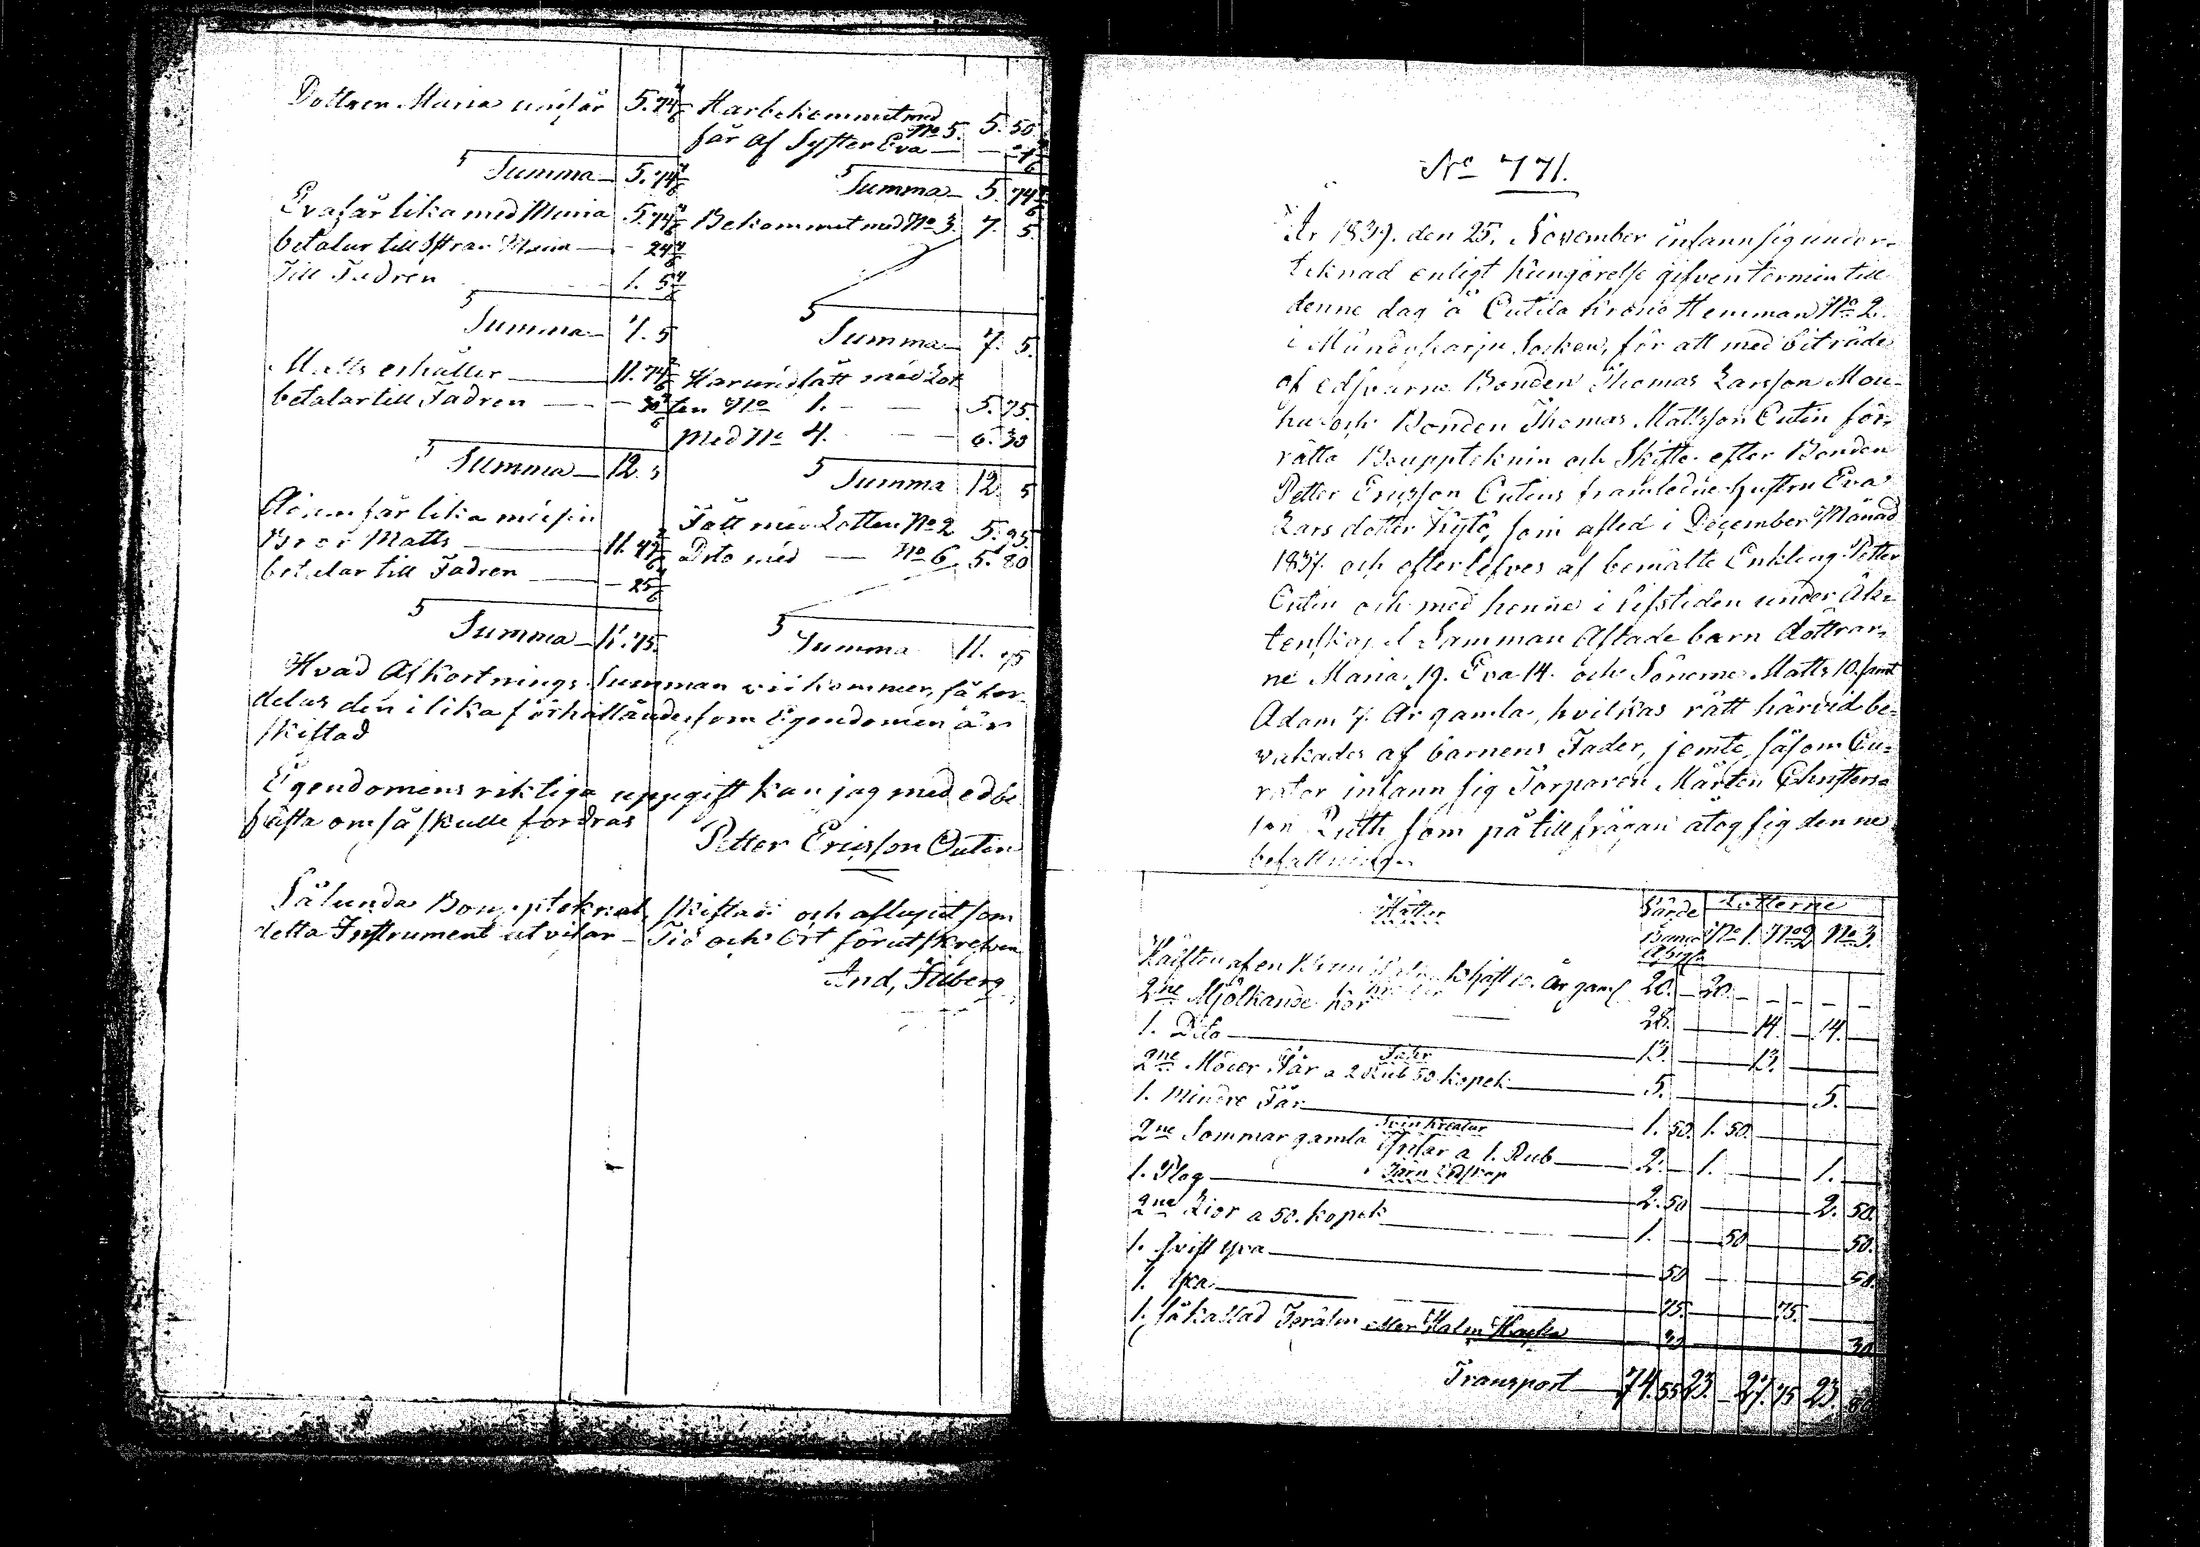 Dottren Maria unfår 5.74 4/6 Har bekommit med
N:o 5. 5. 50.
får af Syster Eva — — 24 4/6
Summa 5.74 4/6 Summa 5 74 4/6
Eva får lika med Maria 5.74 4/6 Bekommit med N:o 3. 7. 5.
betalar till Systran Maria — 24 4/6
Till Fadren 1. 5 4/6
Summa 7. 5 Summa 7. 5.
Matts erhåller 11. 74 Har undfått med Lot
betalar till Fadren — 30 ten N:o 1. — 5. 75.
med N:o 4. — 6. 30
Summa 12. 5 Summa 12. 5
Adam får lika med sin Fått med Lotten N:o 2 5. 95.
Bror Matts 11. 49 Dito med — N:o 6 5. 80
betalar till Fadren — 25
Summa 11. 75. Summa 11. 75
Hvad Afkortnings Summan vidkommer, så for-
delas den i lika förhållande som Egendomen är
skiftad
Egendomens riktiga uppgift kan jag med ed be
fästa om så skulle fordras
Petter Ericsson Outin
Sålunda Bouppteknat, skiftadt och aflupit som
detta Instrument utvisar — Tid och Ort förutskrefven
And, Filberg

N:o 771.
År 1837. den 25. November infann sig under-
teknad enligt kungörelse gifven termin till
denne dag å Outila Krono Hemman N:o 2.
i Mundoharju Socken, för att med biträde
af edsvarne Bonden Thomas Larsson Mou-
hu och Bonden Thomas Mattsson Outin för-
rätta Bouppteknin och Skifte efter Bonden
Petter Ericsson Outins framledne hustru Eva
Lars dotter Hytö, som afled i December Månad
1837. och efterlefves af bemälte Enkling Petter
Outin och med henne i lifstiden under Äk-
tenskapet Samman Aflade barn döttrar-
ne Maria 19. Eva 14. och Sönerne Matts 10. samt
Adam 7. År gamla, hvilkas rätt härvid be-
vakades af barnens Fader, jemte såsom Cu-
rator infann sig Torparen Mårten Christers-
son Ruth som på tillfrågan åtog sig denne
befattning.
Hästar Värde Lotterne
Banco N:o 1. N:o 2 N:o 3.
Hälften af en år gaml 20. — 20. — — — — —
2ne Mjölkande Kor 28. — 14. — 14.
1. Dito 13. 13.
Fåhr
2ne Möder Får a 2 Rub 50 kopek 5. 5.
1. Mindre Får 1. 50. 1. 50.
Svin kreatur
2ne Sommar gamla a 1. Rub 2. 1. 1.
Järn Redskap
1. Plog 2. 50 2. 50.
2ne Lior a 50. kopek 1. 50 50.
1. yxa 50 50.
1. yxa 75. 75.
1. så kallad eller Halm Hacka 30 30
Transport 74. 55 23. — 27. 75 23. 80